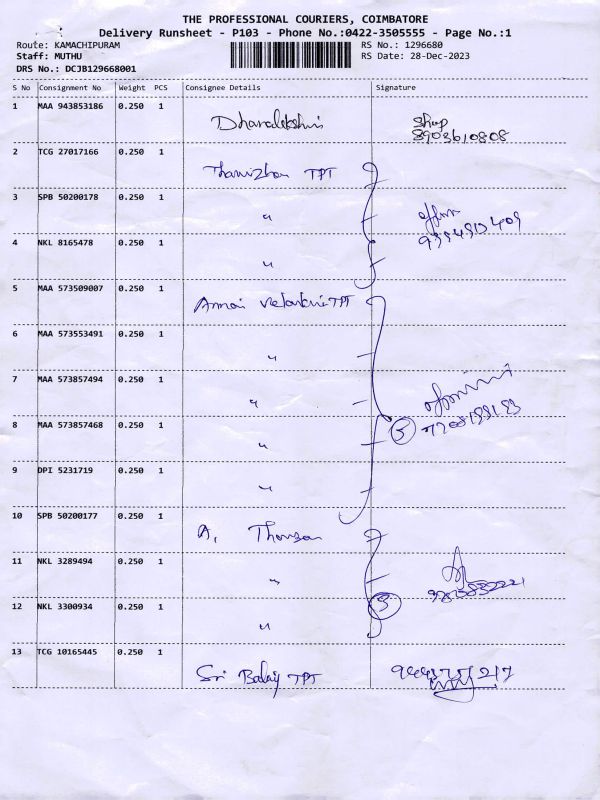 THE PROFESSIONAL COURIERS, COIMBATORE
Delivery Runsheet - P103 - Phone No.:0422-3505555 - Page No.:1
Route: KAMACHIPURAM RS No.: 1296680
Staff: MUTHU RS Date: 28-Dec-2023
DRS No.: DCJB129668001
S No Consignment No Weight PCS Consignee Details Signature
1 MAA 943853186 0.250 1
Shop
8903610808
2 TCG 27017166 0.250 1
TPT
3 SPB 50200178 0.250 1 "
4 NKL 8165478 0.250 1 "
5 MAA 573509007 0.250 1
Annai TPT
6 MAA 573553491 0.250 1 "
7 MAA 573857494 0.250 1 "
8 MAA 573857468 0.250 1 " 5
9 DPI 5231719 0.250 1 "
10 SPB 50200177 0.250 1
A.
11 NKL 3289494 0.250 1 "
12 NKL 3300934 0.250 1 " 3
13 TCG 10165445 0.250 1
Sri Balaji TPT